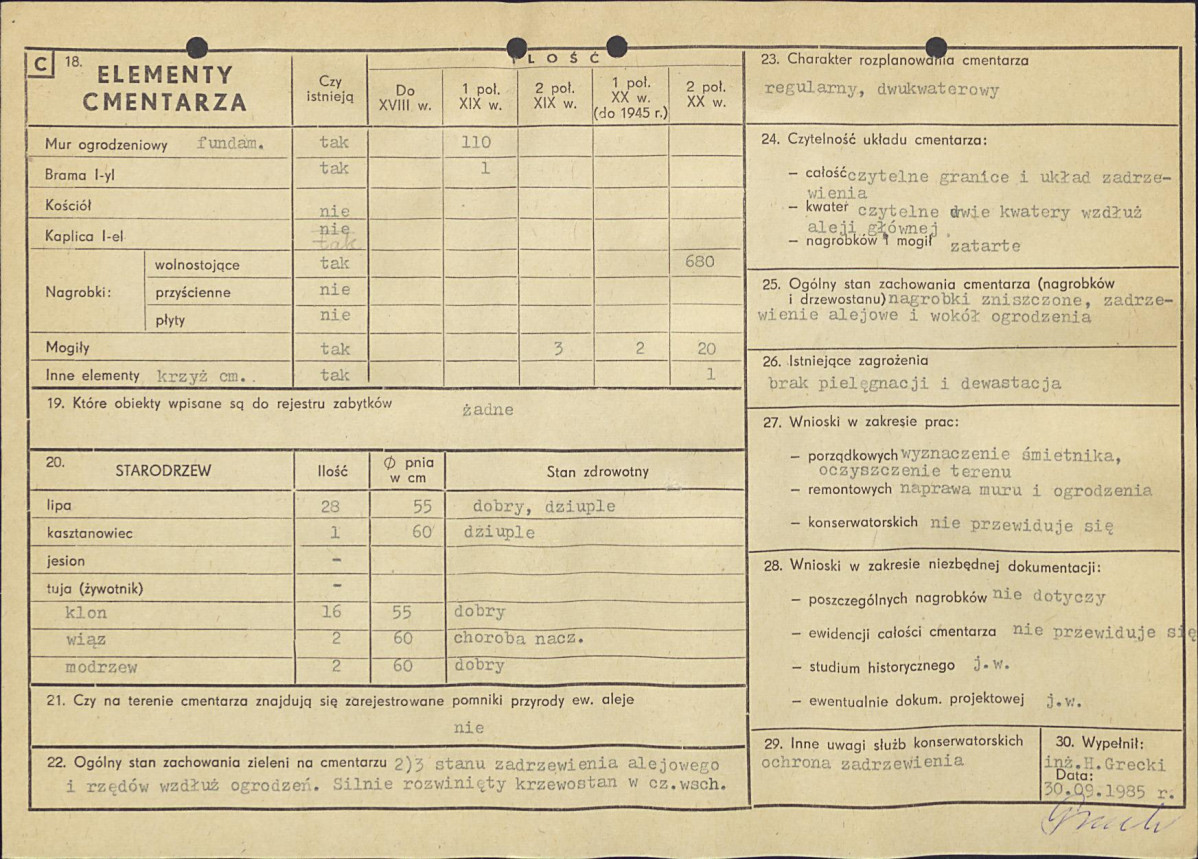 C 18. ELEMENTY CMENTARZA
Czy istnieją
ILOŚĆ
Do XVIII w.
1 poł. XIX w.
2 poł. XIX w.
1 poł. XX w. (do 1945 r.)
2 poł. XX w.
Mur ogrodzeniowy fundam. tak 110
Brama I-yl tak 1
Kościół nie
Kaplica I-el nie tak
Nagrobki:
wolnostojące tak 680
przyścienne nie
płyty nie
Mogiły tak 3 2 20
Inne elementy krzyż cm.. tak 1
19. Które obiekty wpisane są do rejestru zabytków żadne
20. STARODRZEW Ilość Ø pnia w cm Stan zdrowotny
lipa 28 55 dobry, dziuple
kasztanowiec 1 60 dziuple
jesion -
tuja (żywotnik) -
klon 16 55 dobry
wiąz 2 60 choroba nacz.
modrzew 2 60 dobry
21. Czy na terenie cmentarza znajdują się zarejestrowane pomniki przyrody ew. aleje
nie
22. Ogólny stan zachowania zieleni na cmentarzu 2)3 stanu zadrzewienia alejowego
i rzędów wzdłuż ogrodzeń. Silnie rozwinięty krzewostan w cz.wsch.
23. Charakter rozplanowania cmentarza
regularny, dwukwaterowy
24. Czytelność układu cmentarza:
– całość czytelne granice i układ zadrze-
wienia
– kwater czytelne dwie kwatery wzdłuż
aleji głównej
– nagrobków i mogił zatarte
25. Ogólny stan zachowania cmentarza (nagrobków
i drzewostanu) nagrobki zniszczone, zadrze-
wienie alejowe i wokół ogrodzenia
26. Istniejące zagrożenia
brak pielęgnacji i dewastacja
27. Wnioski w zakresie prac:
– porządkowych wyznaczenie śmietnika,
oczyszczenie terenu
– remontowych naprawa muru i ogrodzenia
– konserwatorskich nie przewiduje się
28. Wnioski w zakresie niezbędnej dokumentacji:
– poszczególnych nagrobków nie dotyczy
– ewidencji całości cmentarza nie przewiduje się
– studium historycznego j.w.
– ewentualnie dokum. projektowej j.w.
29. Inne uwagi służb konserwatorskich
ochrona zadrzewienia
30. Wypełnił:
inż.H.Grecki
Data:
30.09.1985 r.